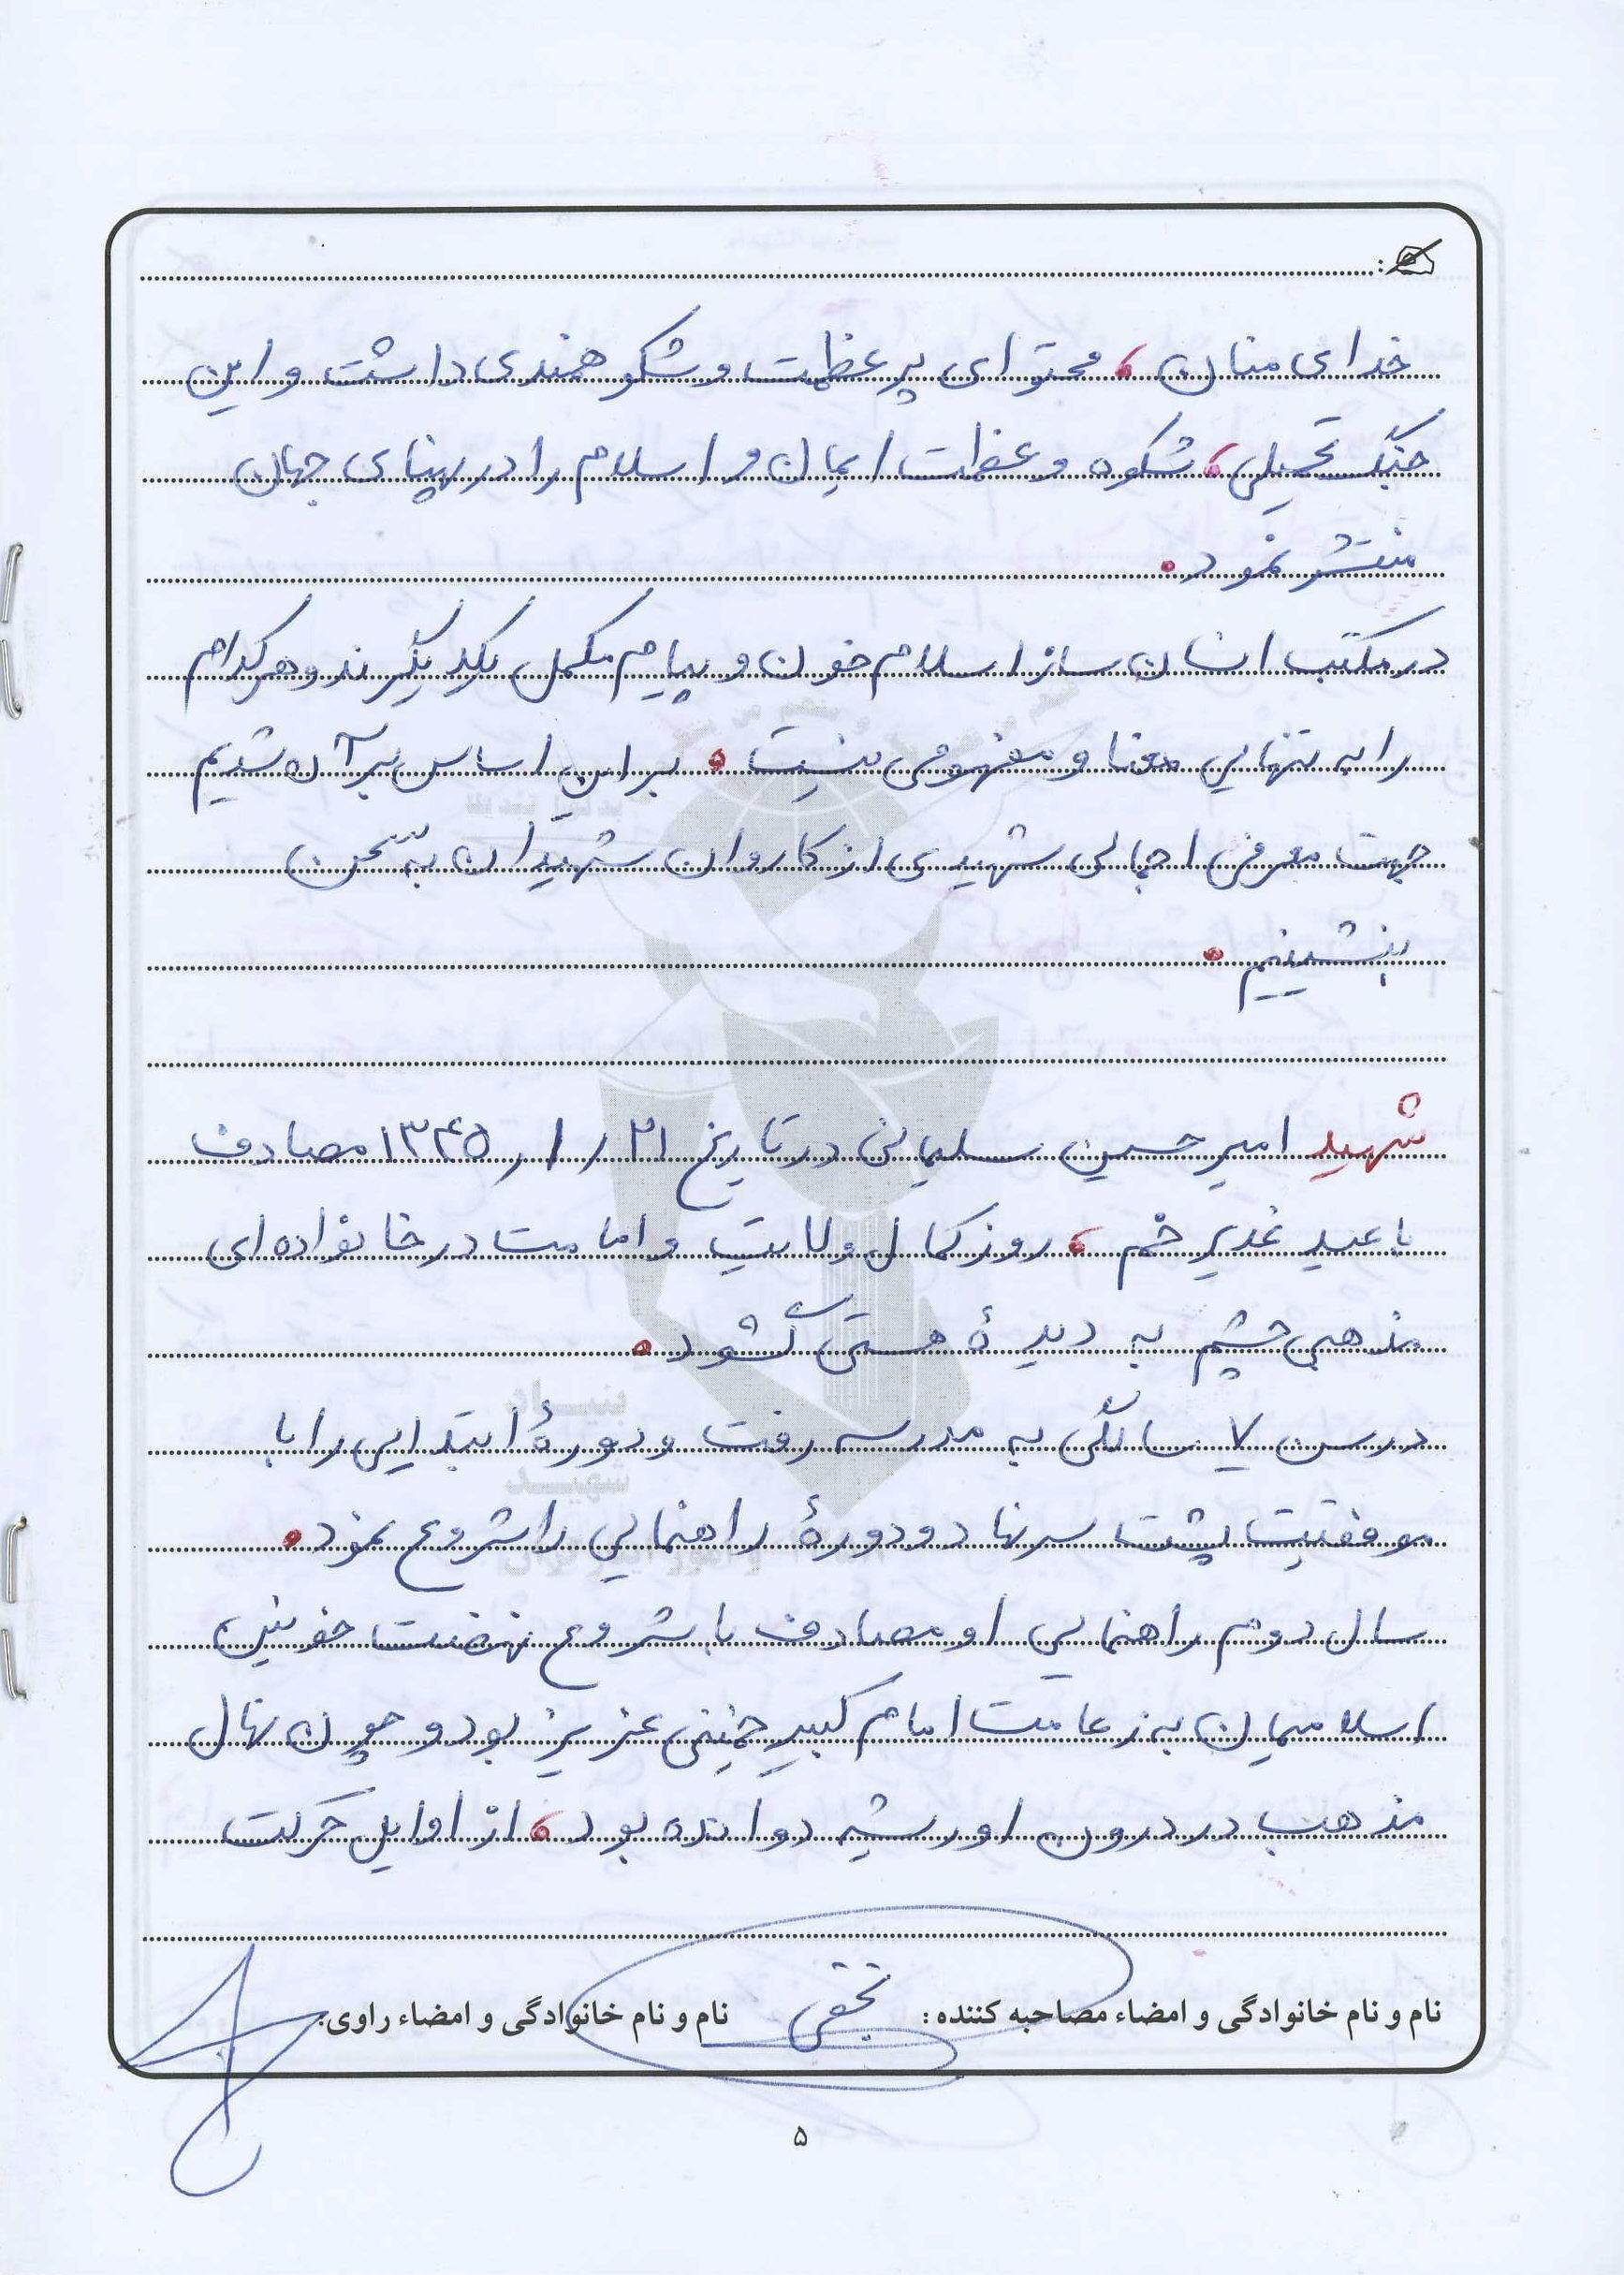 خدای منان، محتوای پر عظمت و شکوهمندی داشت و این
جنگ تحمیلی، شکوه و عظمت ایمان و اسلام را در پهنای جهان
منتشر نمود.
در مکتب انسان ساز اسلام خون و پیام مکمل یکدیگرند و هرکدام
را به تنهایی معنا و مفهومی نیست. بر این اساس بر آن شدیم
جهت معرفی اجمالی شهیدی از کاروان شهیدان به سخن
بنشینیم.
شهید امیرحسین سلیمانی در تاریخ ۲۱ / ۱ / ۱۳۴۵ مصادف
با عید غدیر خم، روز کمال ولایت و امامت در خانواده ای
مذهبی چشم به دیدهٔ هستی گشود.
در سن ۷ سالگی به مدرسه رفت و دورهٔ ابتدایی را با
موفقیت پشت سر نهاد و دورهٔ راهنمایی را شروع نمود.
سال دوم راهنمایی او مصادف با شروع نهضت خونین
اسلامیمان به زعامت امام کبیر خمینی عزیز بود و چون نهال
مذهب در درون او ریشه دوانده بود، از اوایل حرکت
نام و نام خانوادگی و امضاء مصاحبه کننده :
نام و نام خانوادگی و امضاء راوی:
۵